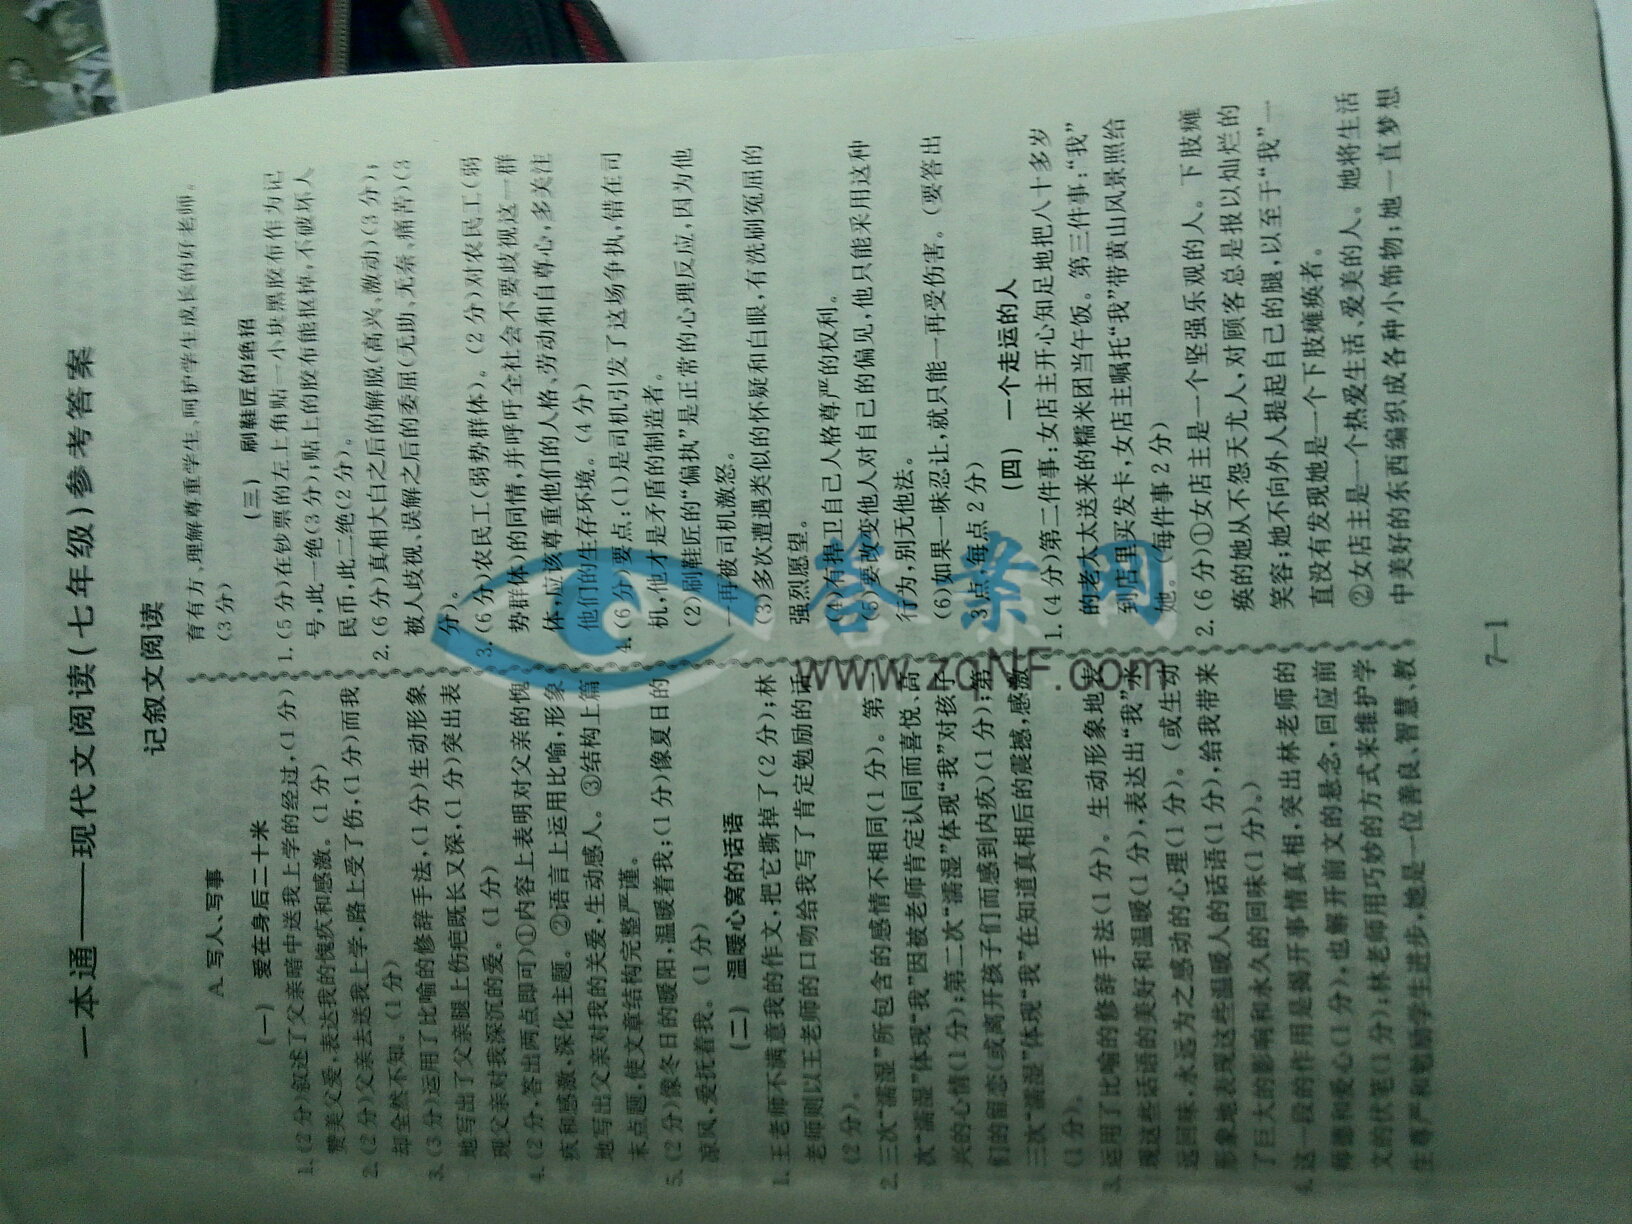 一本通——现代文阅读(七年级)参考答案
记叙文阅读
A. 写人、写事
(一) 爱在身后二十米
1. (2分)叙述了父亲暗中送我上学的经过,(1分)
赞美父爱,表达我的愧疚和感激。(1分)
2. (2分)父亲去送我上学,路上受了伤,(1分)而我
却全然不知。(1分)
3. (3分)运用了比喻的修辞手法,(1分)生动形象
地写出了父亲腿上伤疤既长又深,(1分)突出表
现父亲对我深沉的爱。(1分)
4. (2分,答出两点即可)①内容上表明对父亲的愧
疚和感激,深化主题。②语言上运用比喻,形象
地写出父亲对我的关爱,生动感人。③结构上篇
末点题,使文章结构完整严谨。
5. (2分)像冬日的暖阳;温暖着我;(1分)像夏日的
凉风,爱抚着我。(1分)
(二) 温暖心窝的话语
1. 王老师不满意我的作文,把它撕掉了(2分);林
老师则以王老师的口吻给我写了肯定勉励的话
(2分)。
2. 三次“濡湿”所包含的感情不相同(1分)。第一
次“濡湿”体现“我”因被老师肯定认同而喜悦、高
兴的心情(1分);第二次“濡湿”体现“我”对孩子
们的留恋(或离开孩子们而感到内疚)(1分);第
三次“濡湿”体现“我”在知道真相后的震撼,感激
(1分)。
3. 运用了比喻的修辞手法(1分)。生动形象地表
现这些话语的美好和温暖(1分),表达出“我”永
远回味,永远为之感动的心理(1分)。(或生动
形象地表现这些温暖人的话语(1分),给我带来
了巨大的影响和永久的回味(1分)。)
4. 这一段的作用是揭开事情真相,突出林老师的
师德和爱心(1分),也解开前文的悬念,回应前
文的伏笔(1分);林老师用巧妙的方式来维护学
生尊严和勉励学生进步,她是一位善良、智慧、教
育有方、理解尊重学生、呵护学生成长的好老师。
(3分)
(三) 刷鞋匠的绝招
1. (5分)在钞票的左上角贴一小块黑胶布作为记
号,此一绝(3分);贴上的胶布能抠掉,不破坏人
民币,此二绝(2分)。
2. (6分)真相大白之后的解脱(高兴、激动)(3分);
被人歧视、误解之后的委屈(无助、无奈、痛苦)(3
分)。
3. (6分)农民工(弱势群体)。(2分)对农民工(弱
势群体)的同情,并呼吁全社会不要歧视这一群
体,应该尊重他们的人格、劳动和自尊心,多关注
他们的生存环境。(4分)
4. (6分)要点:(1)是司机引发了这场争执,错在司
机,他才是矛盾的制造者。
(2)刷鞋匠的“偏执”是正常的心理反应,因为他
一再被司机激怒。
(3)多次遭遇类似的怀疑和白眼,有洗刷冤屈的
强烈愿望。
(4)有捍卫自己人格尊严的权利。
(5)要改变他人对自己的偏见,他只能采用这种
行为,别无他法。
(6)如果一味忍让,就只能一再受伤害。(要答出
3点,每点2分)
(四) 一个走运的人
1. (4分)第二件事:女店主开心知足地把八十多岁
的老太太送来的糯米团当午饭。第三件事:“我”
到店里买发卡,女店主嘱托“我”带黄山风景照给
她。(每件事2分)
2. (6分)①女店主是一个坚强乐观的人。下肢瘫
痪的她从不怨天尤人,对顾客总是报以灿烂的
笑容;她不向外人提起自己的腿,以至于“我”一
直没有发现她是一个下肢瘫痪者。
②女店主是一个热爱生活、爱美的人。她将生活
中美好的东西编织成各种小饰物;她一直梦想
7-1
答案网
www.zqnf.com